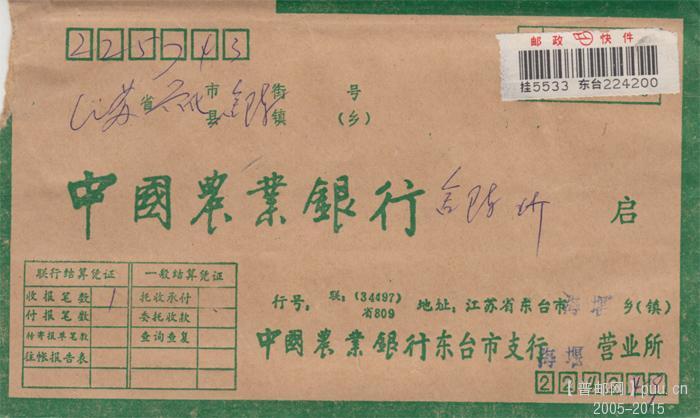 225743
邮政 快件
挂5533 东台224200
江苏省兴化市县 街镇(乡) 号
中國農業銀行 所 启
联行结算凭证 一般结算凭证
收报笔数 1 托收承付
付报笔数 委托收款
转寄报单笔数 查询查复
往帐报告表
行号: 联:(34497) 省809 地址:江苏省东台市海堰乡(镇)
中國農業銀行东台市支行海堰营业所
普邮网 puu.cn
2005-2015